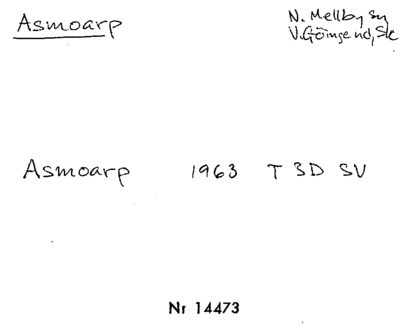 Asmoarp
N. Mellby sn
V. Göinge hd, Sk
Asmoarp 1963 T 3D SV
Nr 14473